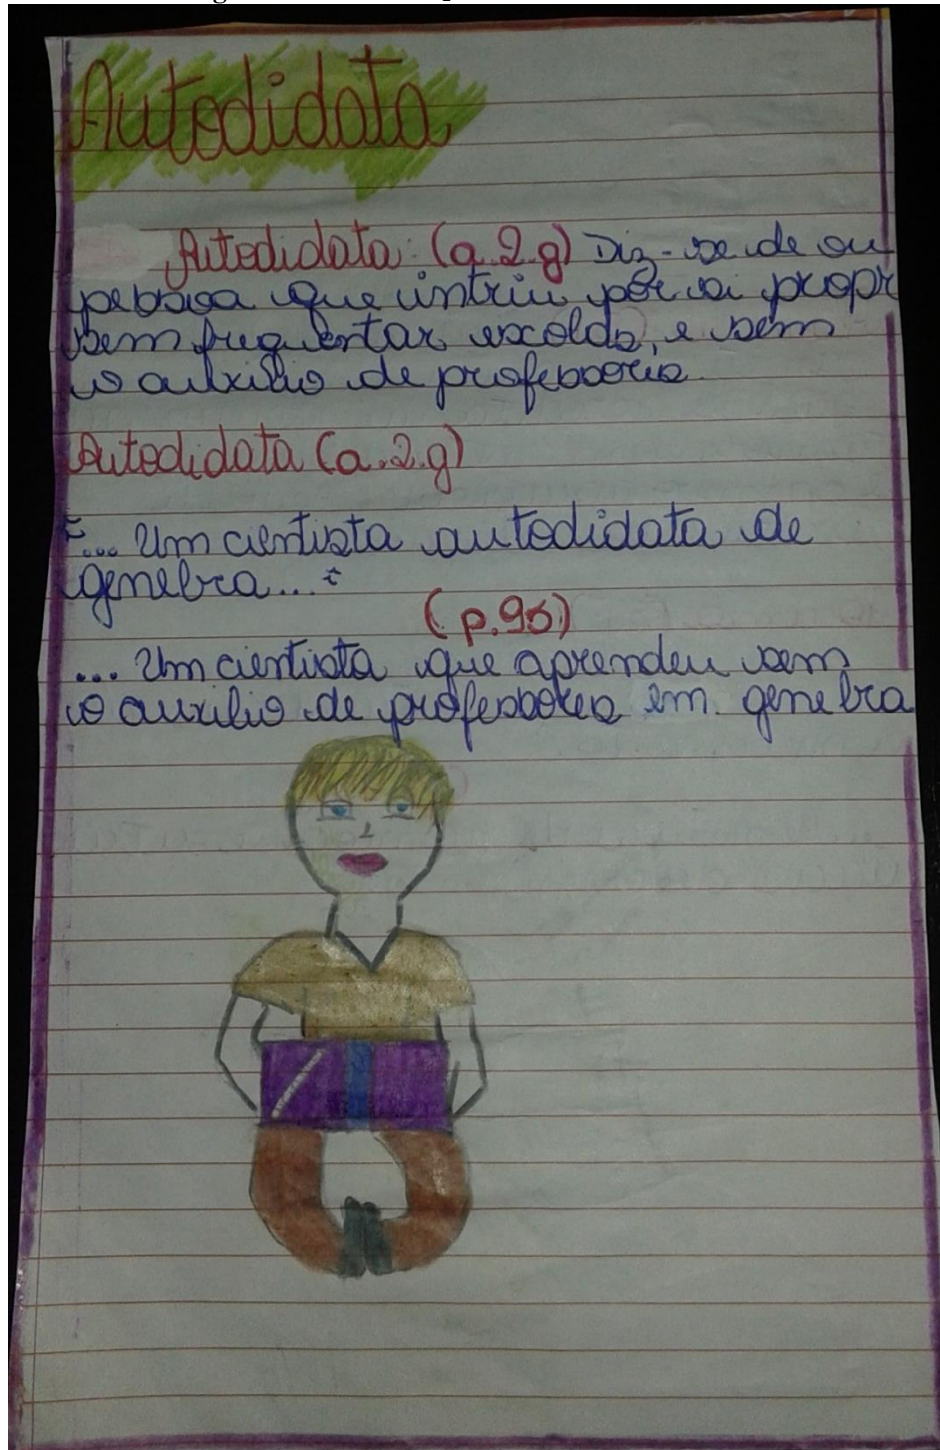 Autodidata
Autodidata: (a.2.g) Diz-se de ou
pessoa que intriu por si propr
sem frequentar escolas, e sem
o auxilio de professores.
Autodidata (a.2.g)
"... Um cientista autodidata de
genebra..."
(p.95)
... Um cientista que aprendeu sem
o auxilio de professores em genebra